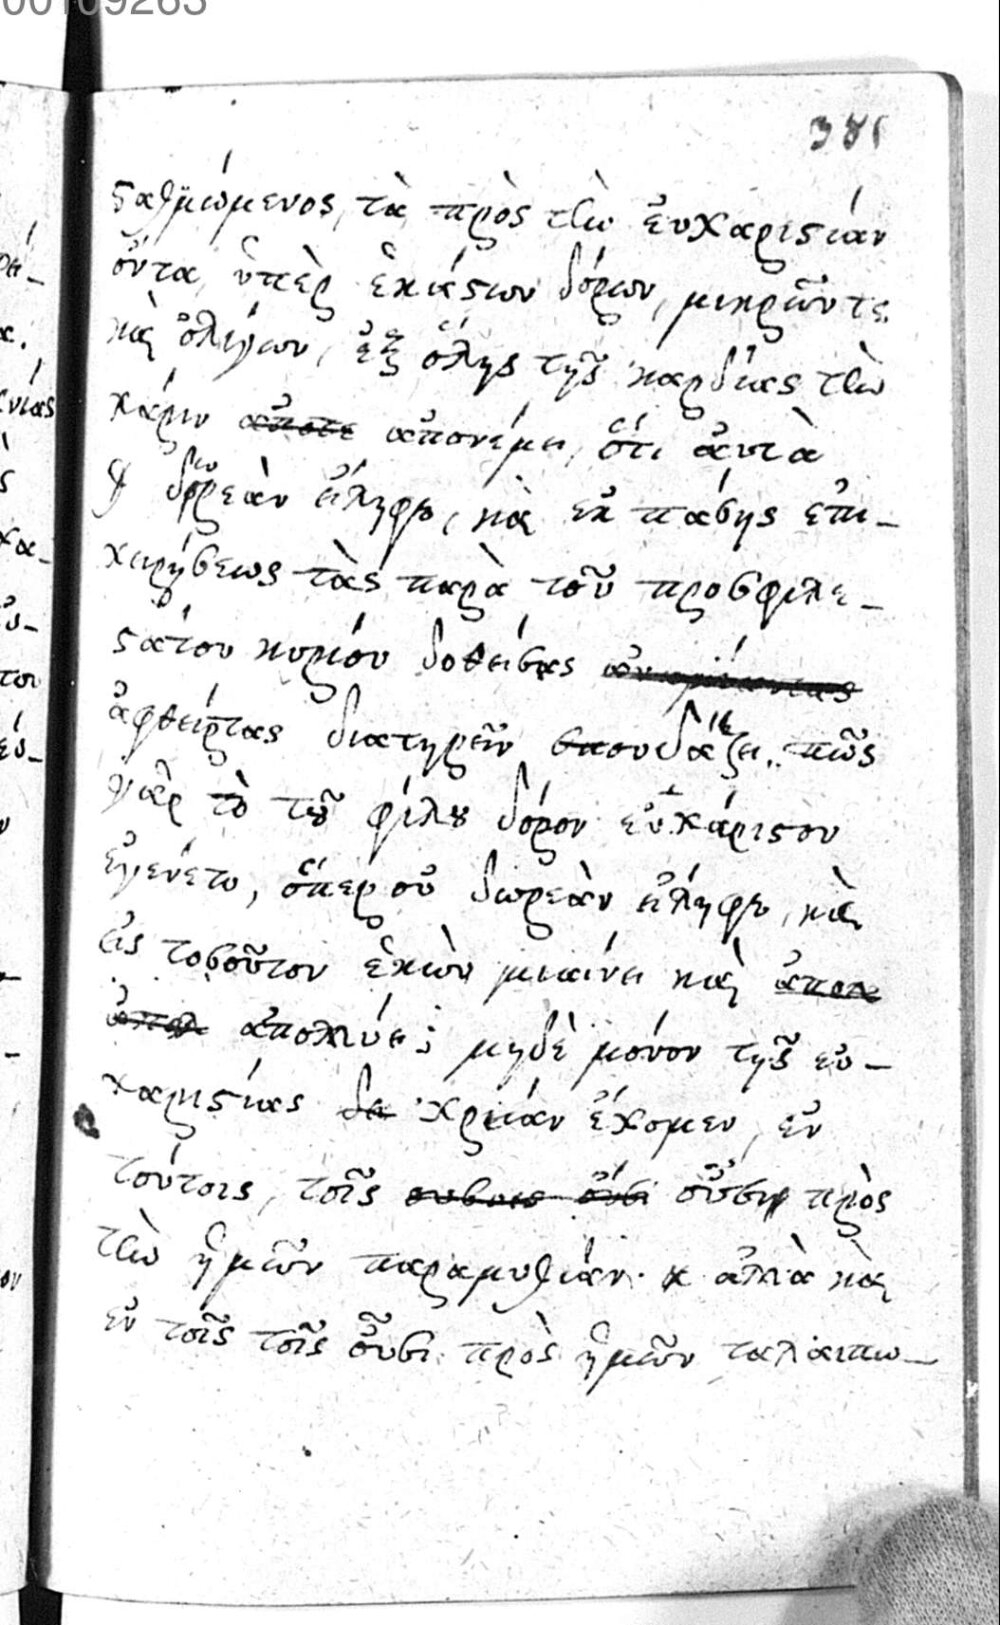 00109263
381
σαθμιώμενος, τὰ πρὸς τὴν εὐχαριστίαν
ὄντα, ὑπὲρ ἑκάστων δόρων, μικρῶν τε
καὶ ὀλίγων, ἐξ ὅλης τῆς καρδίας τὴν
χάριν ἀπονέμει, ὅτι ἀυτὰ
δορεὰν εἴληφε, καὶ ἐκ πάσης ἐπι-
χειρήσεως τὰς παρὰ τοῦ προσφιλε-
στάτου κυρίου δοθείσας
ἀφθείρτας διατηρεῖν σπουδάζει. πῶς
γὰρ τὸ τοῦ φίλου δόρον εὐχάριστον
ἐγένετο, ὅπερ οὐ δωρεὰν εἴληφε, καὶ
εἰς τοσοῦτον ἑκὼν μιαίνει καὶ
ἀπολλύει; μηδὲ μόνον τῆς εὐ-
χαριστίας χρείαν ἔχομεν, ἐν
τούτοις, τοῖς οὖσιν πρὸς
τὴν ἡμῶν παραμυθίαν· ἀλλὰ καὶ
ἐν τοῖς τοῖς οὖσι πρὸς ἡμῶν ταλαιπω-